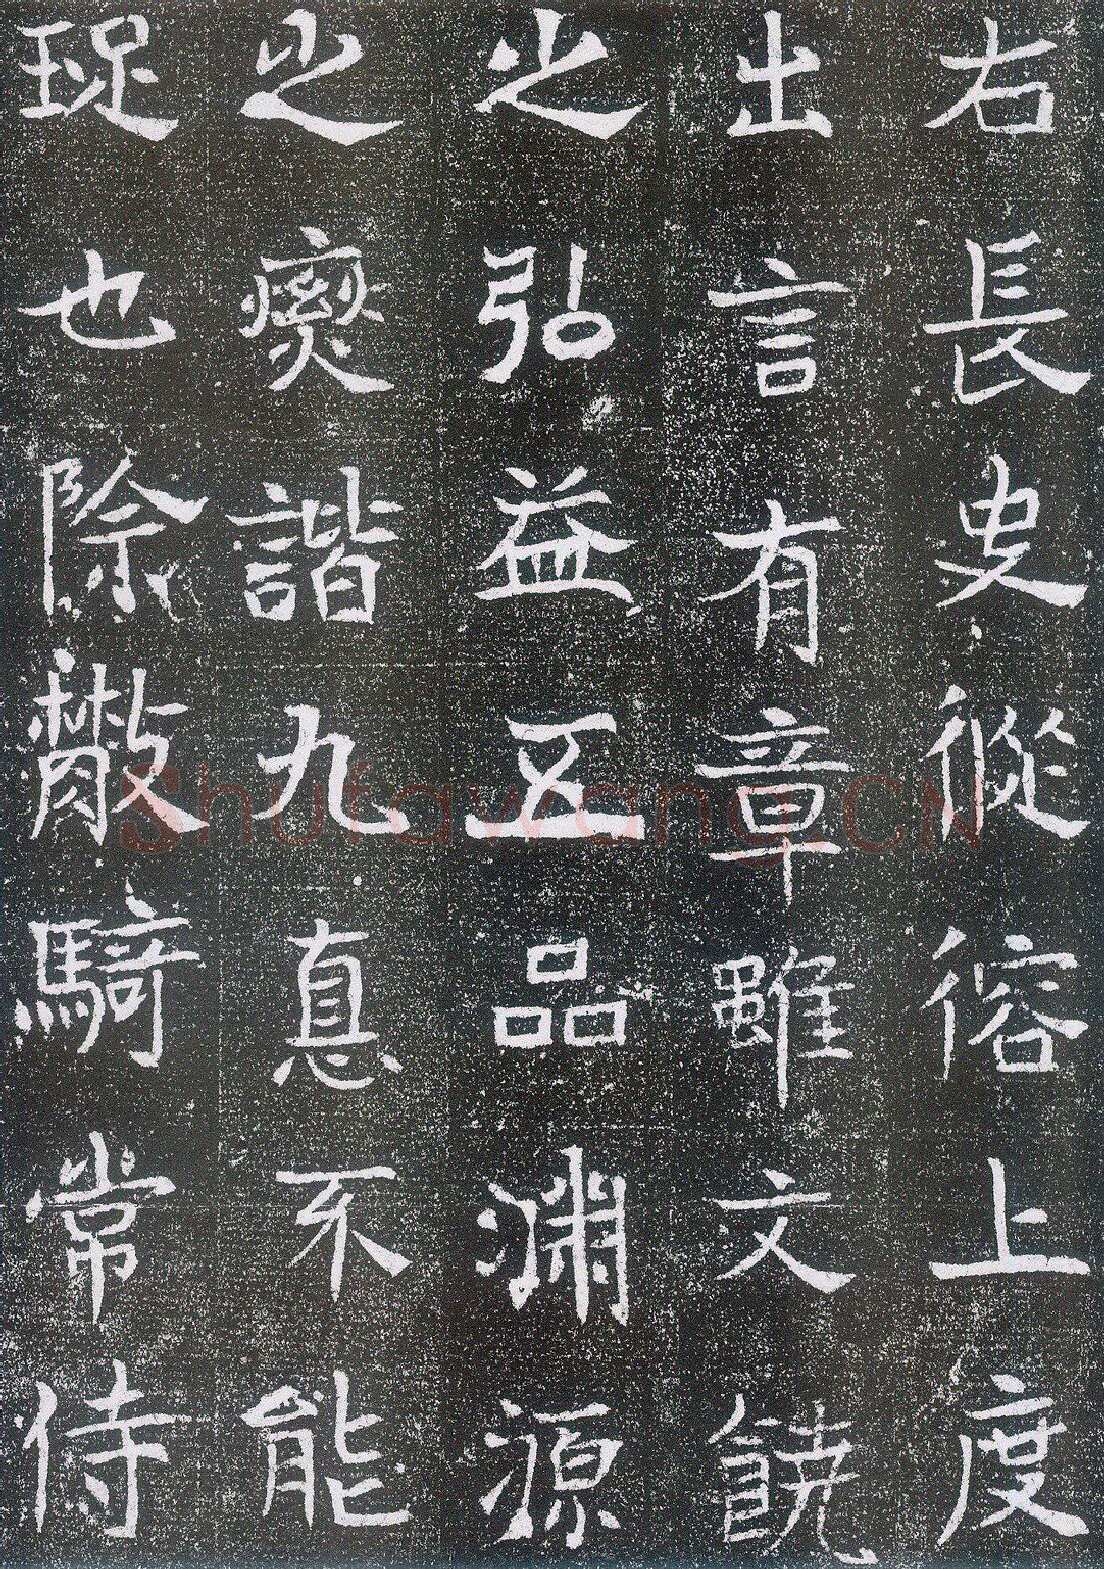 右長史從容上度
出言有章雖文饒
之弘益五品淵源
之爕諧九惪不能
也除散騎常侍
Shufawang.CN